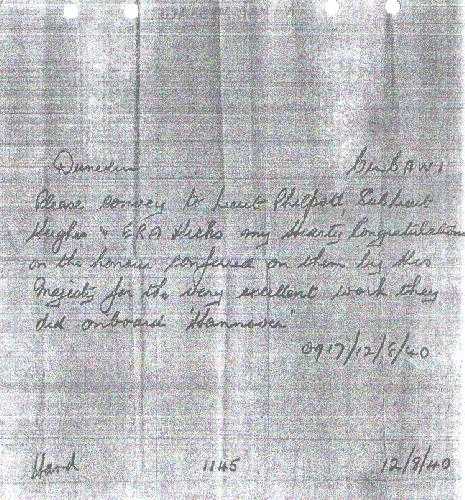 Dunedin CinC A W I
Please convey to Lieut Philpott, Sublieut
Hughes & ERA Hicks my Hearty Congratulations
on the honour conferred on them by His
Majesty for the very excellent work they
did onboard "Hannover"
0917/12/8/40
Hand 1145 12/8/40